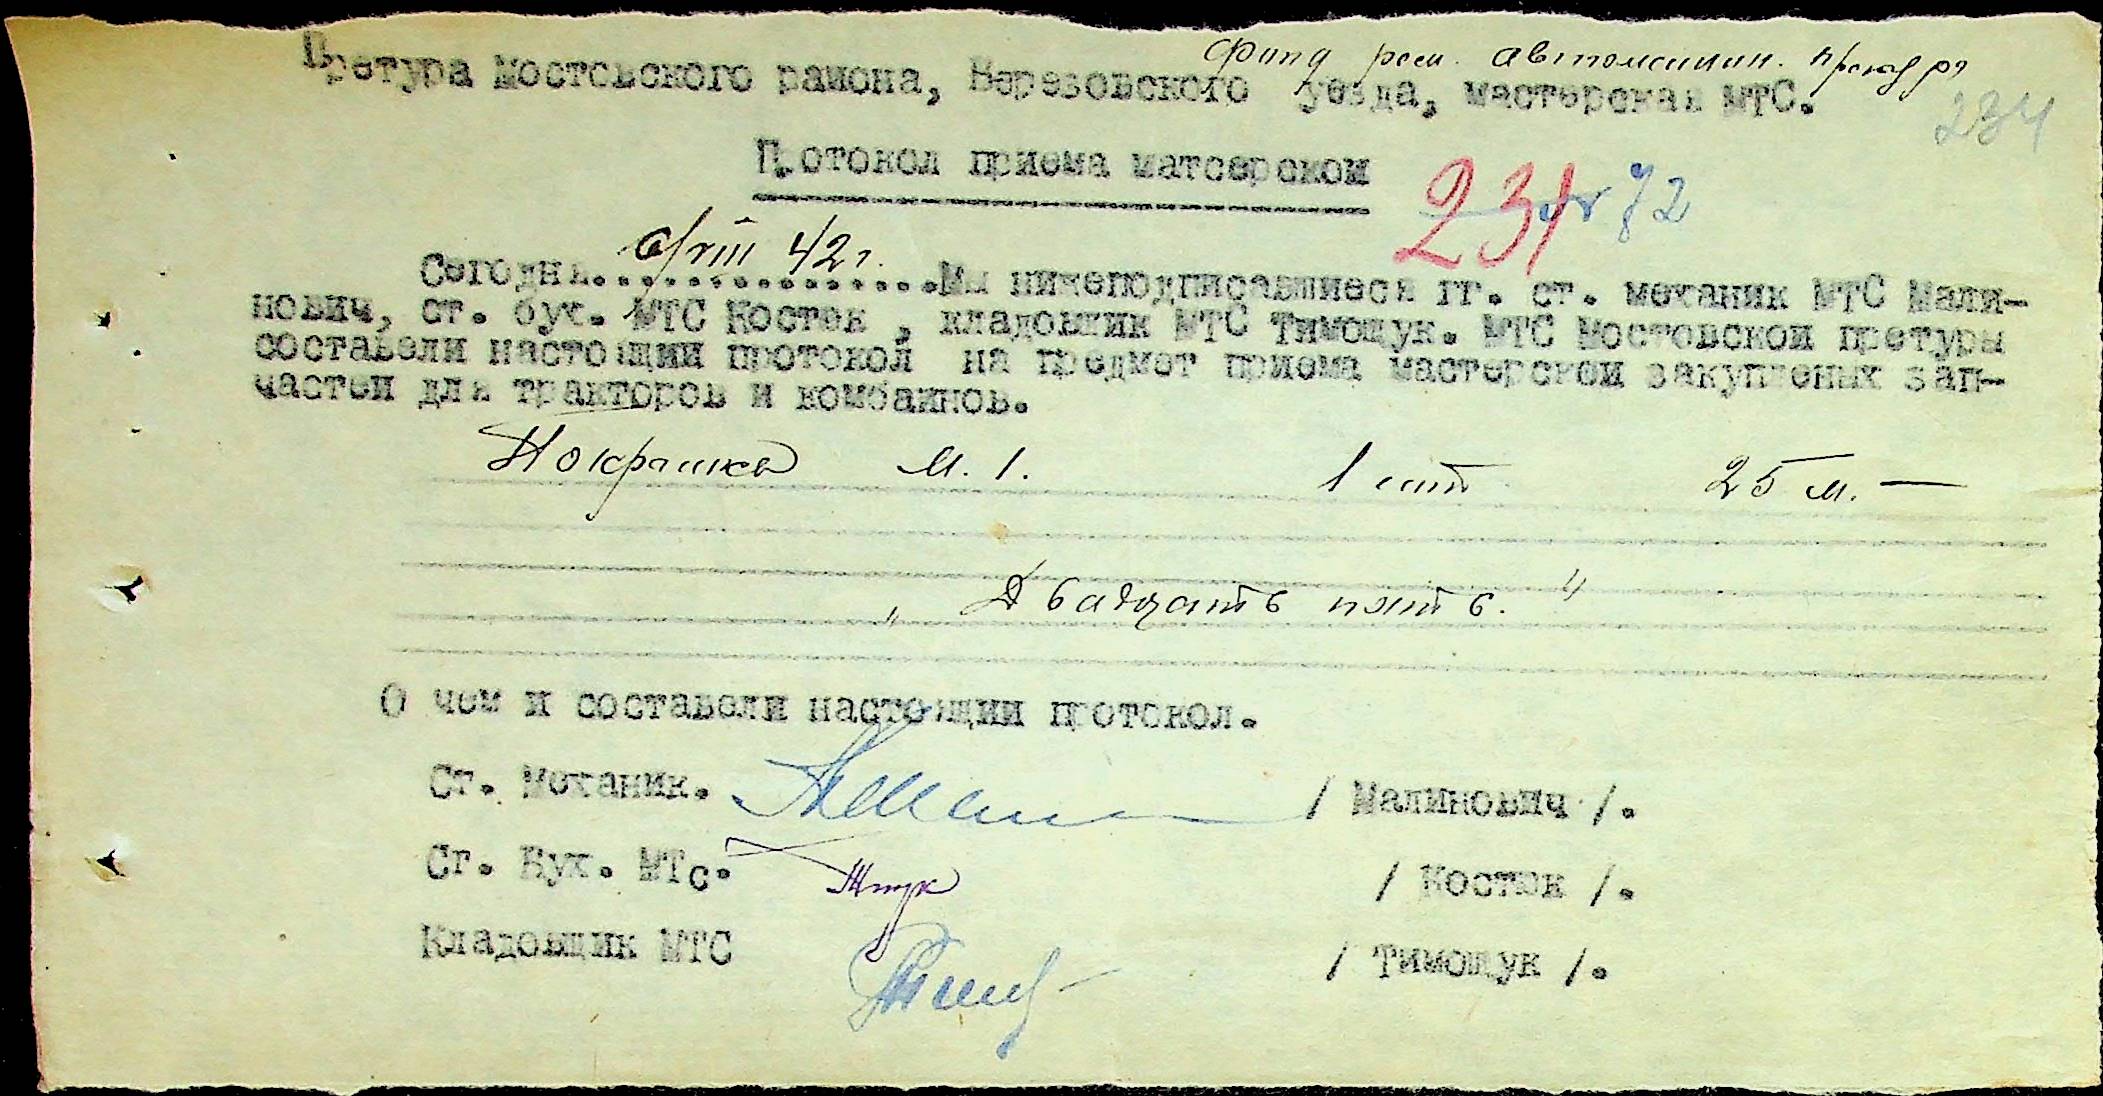 Фонд рем. автомашин.
Претура Мостовского раиона, Березовского уезда, мастерская МТС.
234
Протокол приема матсерскои
231 72
Сегодня................Мы нижеподписавшиеся гг. ст. механик МТС Мали-
6/VIII 42 г.
нович, ст. бух. МТС Костюк , кладовщик МТС Тимощук. МТС Мостовскои претуры
составели настоящии протокол на предмет приема мастерскои закупленых зап-
частеи для тракторов и комбаинов.
Покрышка М. 1. 1 шт 25 м. —
„ Двадцать пять. "
О чем и составели настоящии протокол.
Ст. Механик. / Малинович /.
Ст. Бух. МТс. / Костюк /.
Кладовщик МТС / Тимощук /.